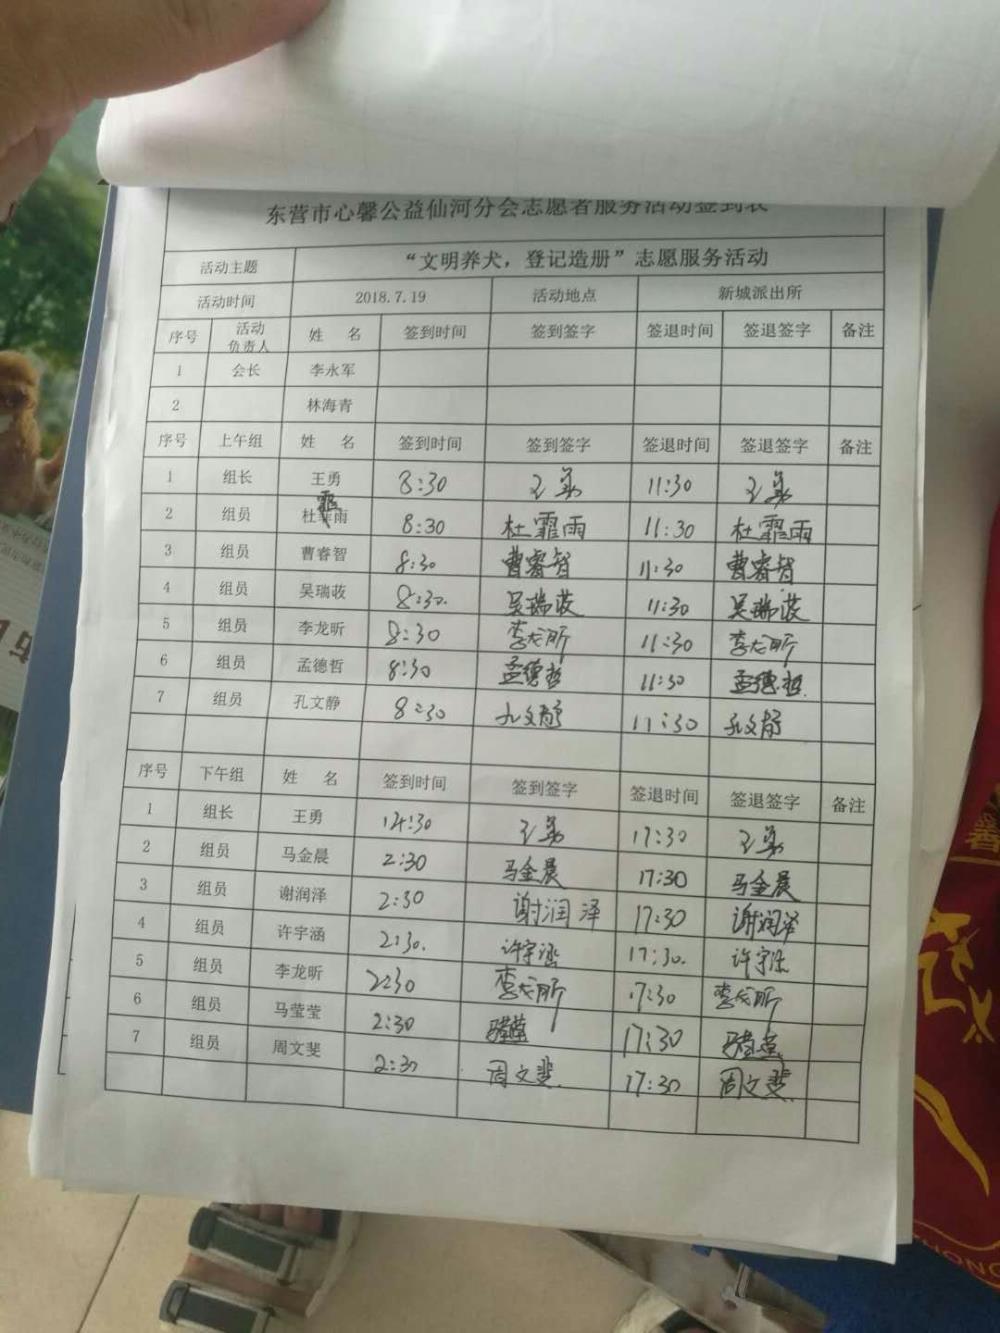 东营市心馨公益仙河分会志愿者服务活动签到表
活动主题 “文明养犬，登记造册”志愿服务活动
活动时间 2018.7.19 活动地点 新城派出所
序号 活动负责人 姓 名 签到时间 签到签字 签退时间 签退签字 备注
1 会长 李永军
2 林海青
序号 上午组 姓 名 签到时间 签到签字 签退时间 签退签字 备注
1 组长 王勇 8:30 王勇 11:30 王勇
2 组员 杜霏雨 8:30 杜霏雨 11:30 杜霏雨
3 组员 曹睿智 8:30 曹睿智 11:30 曹睿智
4 组员 吴瑞莜 8:30. 吴瑞莜 11:30 吴瑞莜
5 组员 李龙昕 8:30 李龙昕 11:30 李龙昕
6 组员 孟德哲 8:30 孟德哲 11:30 孟德哲
7 组员 孔文静 8:30 孔文静 11:30 孔文静
序号 下午组 姓 名 签到时间 签到签字 签退时间 签退签字 备注
1 组长 王勇 14:30 王勇 17:30 王勇
2 组员 马金晨 2:30 马金晨 17:30 马金晨
3 组员 谢润泽 2:30 谢润泽 17:30 谢润泽
4 组员 许宇涵 2:30. 许宇涵 17:30. 许宇涵
5 组员 李龙昕 2:30 李龙昕 17:30 李龙昕
6 组员 马莹莹 2:30 马莹莹 17:30 马莹莹
7 组员 周文斐 2:30 周文斐 17:30 周文斐